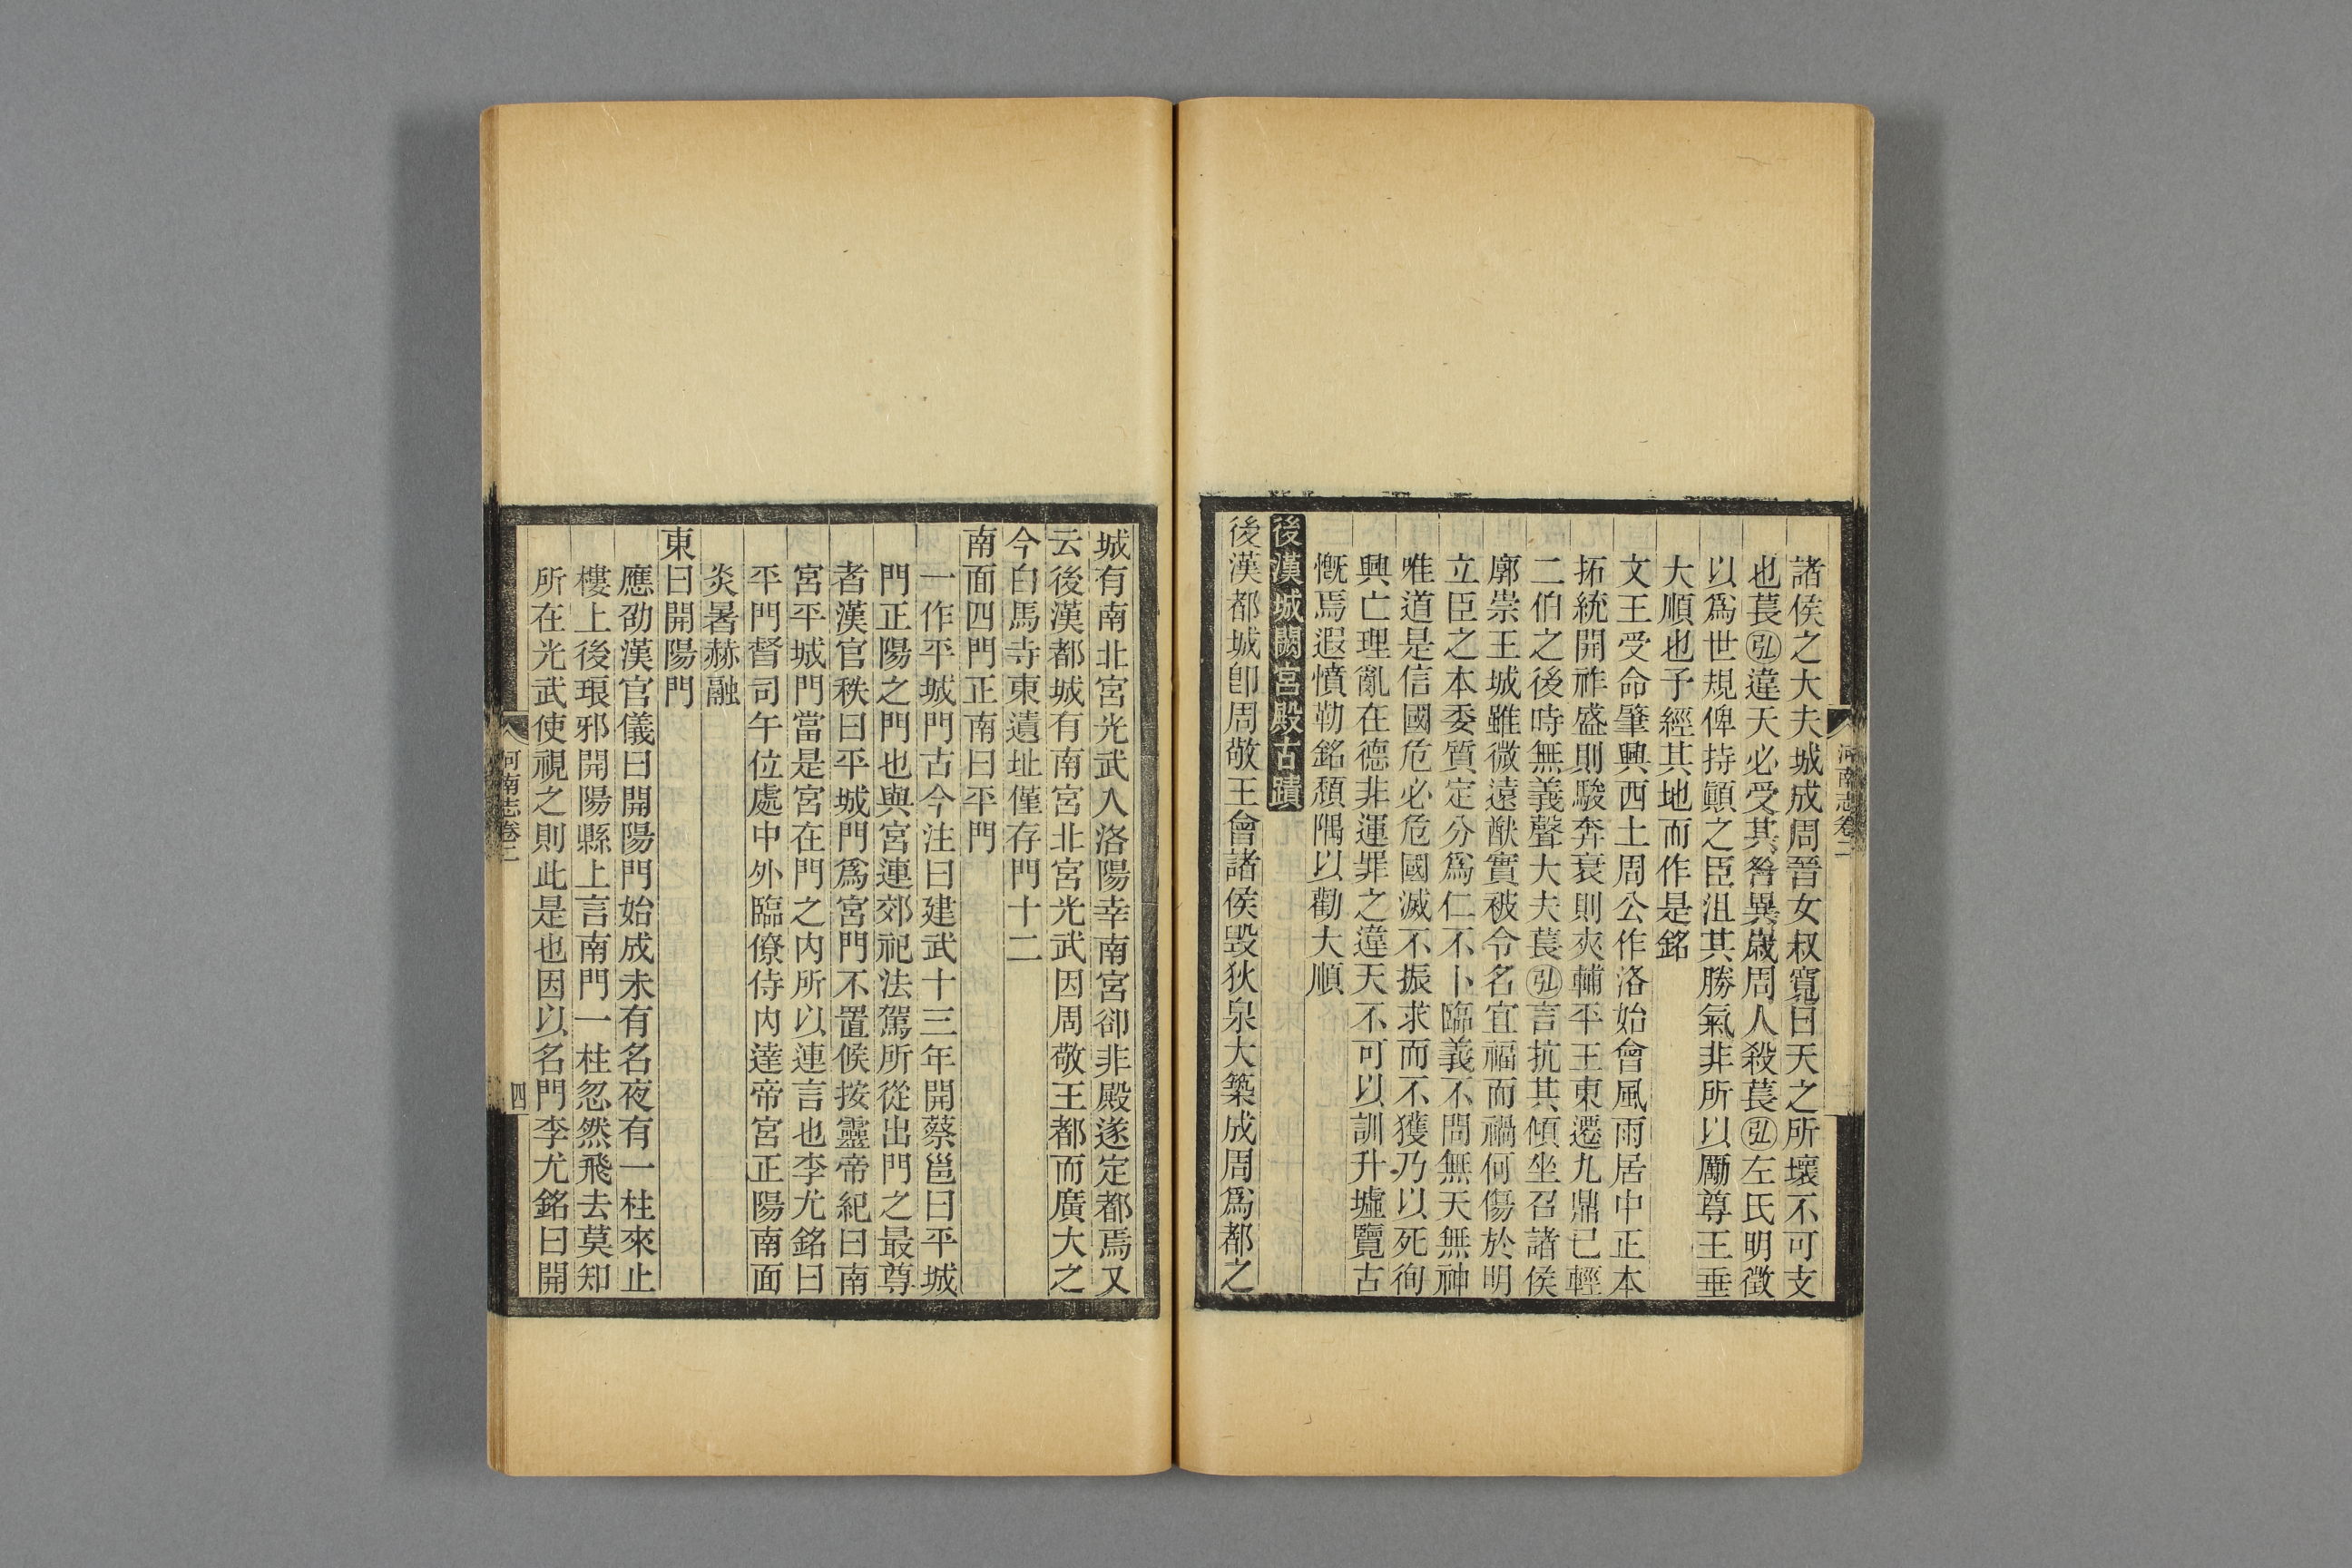 諸侯之大夫城成周晉女叔寬曰天之所壞不可支
也萇弘違天必受其咎異歲周人殺萇弘左氏明徵
以爲世規俾持顚之臣沮其勝氣非所以勵尊王垂
大順也予經其地而作是銘
文王受命肇興西土周公作洛始會風雨居中正本
拓統開祚盛則駿奔衰則夾輔平王東遷九鼎已輕
二伯之後時無義聲大夫萇弘言抗其傾坐召諸侯
廓崇王城雖微遠猷實被令名宜福而禍何傷於明
立臣之本委質定分爲仁不卜臨義不問無天無神
唯道是信國危必危國滅不振求而不獲乃以死徇
興亡理亂在德非運罪之違天不可以訓升墟覽古
慨焉遐憤勒銘頹隅以勸大順
後漢城闕宮殿古蹟
後漢都城卽周敬王會諸侯毀狄泉大築成周爲都之
河南志卷二
城有南北宮光武入洛陽幸南宮卻非殿遂定都焉又
云後漢都城有南宮北宮光武因周敬王都而廣大之
今白馬寺東遺址僅存門十二
南面四門正南曰平門
一作平城門古今注曰建武十三年開蔡邕曰平城
門正陽之門也與宮連郊祀法駕所從出門之最尊
者漢官秩曰平城門爲宮門不置候按靈帝紀曰南
宮平城門當是宮在門之內所以連言也李尤銘曰
平門督司午位處中外臨僚侍內達帝宮正陽南面
炎暑赫融
東曰開陽門
應劭漢官儀曰開陽門始成未有名夜有一柱來止
樓上後琅邪開陽縣上言南門一柱忽然飛去莫知
所在光武使視之則此是也因以名門李尤銘曰開
河南志卷二
四